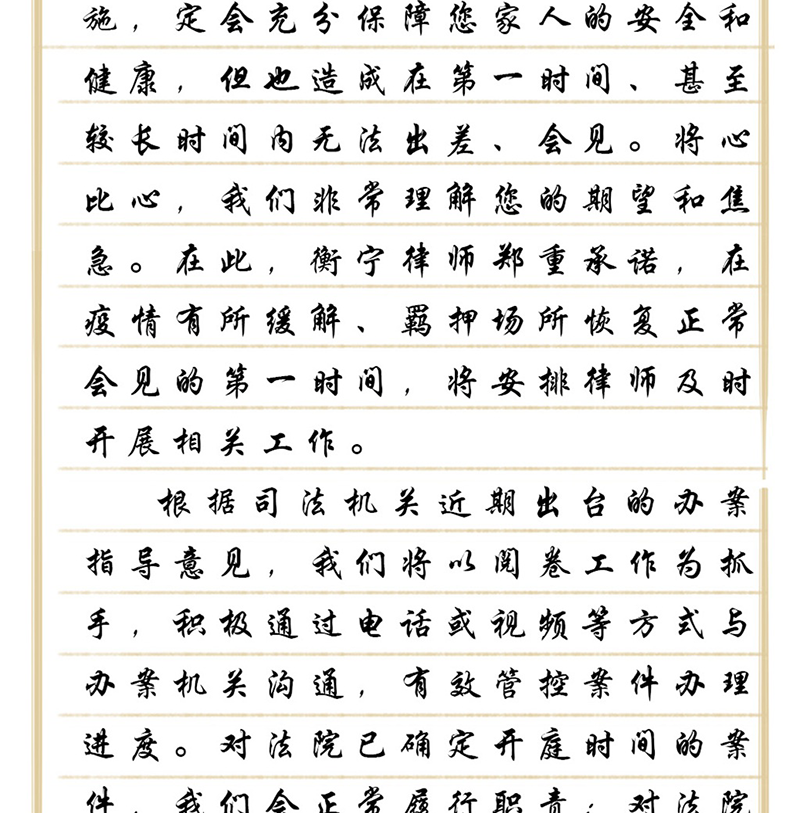 施，定会充分保障您家人的安全和
健康，但也造成在第一时间、甚至
较长时间内无法出差、会见。将心
比心，我们非常理解您的期望和焦
急。在此，衡宁律师郑重承诺，在
疫情有所缓解、羁押场所恢复正常
会见的第一时间，将安排律师及时
开展相关工作。
根据司法机关近期出台的办案
指导意见，我们将以阅卷工作为抓
手，积极通过电话或视频等方式与
办案机关沟通，有效管控案件办理
进度。对法院已确定开庭时间的案
件，我们会正常履行职责；对法院